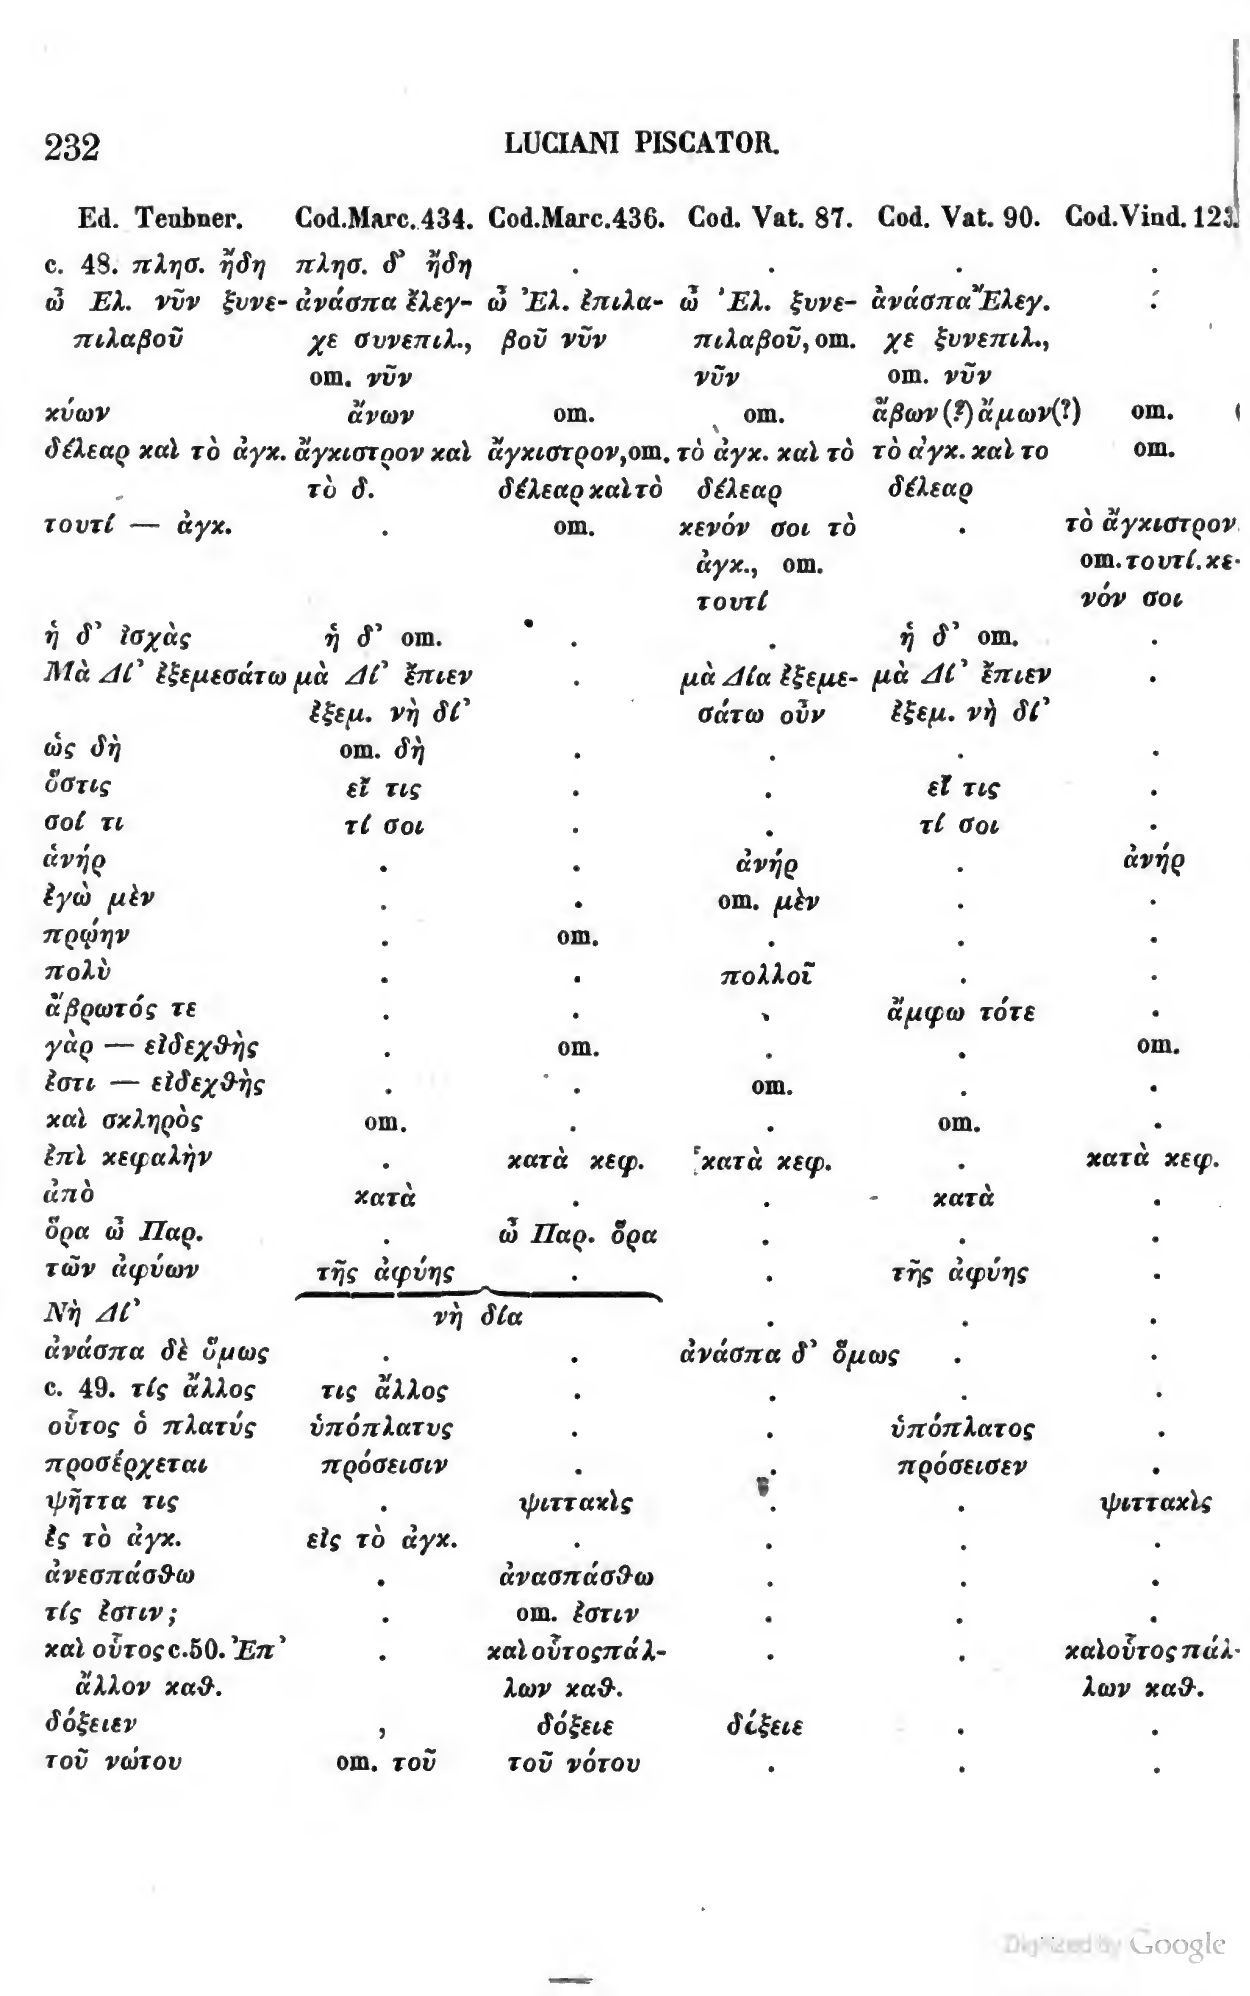 232 LUCIANI PISCATOR.
Ed. Teubner. Cod.Marc.434. Cod.Marc.436. Cod. Vat. 87. Cod. Vat. 90. Cod.Vind.123.
c. 48. πλησ. ἤδη πλησ. δ’ ἤδη . . . .
ὦ Ελ. νῦν ξυνε- ἀνάσπα ἔλεγ- ὦ Ἐλ. ἐπιλα- ὦ Ἐλ. ξυνε- ἀνάσπα Ἔλεγ. .
πιλαβοῦ χε συνεπιλ., βοῦ νῦν πιλαβοῦ, om. χε ξυνεπιλ.,
om. νῦν νῦν om. νῦν
κύων ἄνων om. om. ἄβων (?) ἄμων (?) om.
δέλεαρ καὶ τὸ ἀγκ. ἄγκιστρον καὶ ἄγκιστρον, om. τὸ ἀγκ. καὶ τὸ τὸ ἀγκ. καὶ το om.
τὸ δ. δέλεαρ καὶ τὸ δέλεαρ δέλεαρ
τουτί — ἀγκ. . om. κενόν σοι τὸ . τὸ ἄγκιστρον
ἀγκ., om. om. τουτί. κε-
τουτί νόν σοι
ἡ δ’ ἰσχὰς ἡ δ’ om. . . ἡ δ’ om. .
Μὰ Δί’ ἐξεμεσάτω μὰ Δί’ ἔπιεν . μὰ Δία ἐξεμε- μὰ Δί’ ἔπιεν .
ἐξεμ. νὴ δί’ σάτω οὖν ἐξεμ. νὴ δί’
ὡς δὴ om. δὴ . . . .
ὅστις εἴ τις . . εἴ τις .
σοί τι τί σοι . . τί σοι .
ἁνήρ . . ἀνήρ . ἀνήρ
ἐγὼ μὲν . . om. μὲν . .
πρῴην . om. . . .
πολὺ . . πολλοῦ . .
ἄβρωτός τε . . . ἄμφω τότε .
γὰρ — εἰδεχθὴς . om. . . om.
ἐστι — εἰδεχθὴς . . om. . .
καὶ σκληρὸς om. . . om. .
ἐπὶ κεφαλὴν . κατὰ κεφ. κατὰ κεφ. . κατὰ κεφ.
ἀπὸ κατὰ . . κατὰ .
ὅρα ὦ Παρ. . ὦ Παρ. ὅρα . . .
τῶν ἀφύων τῆς ἀφύης . . τῆς ἀφύης .
Νὴ Δί’ νὴ δία . . .
ἀνάσπα δὲ ὅμως . . ἀνάσπα δ’ ὅμως . .
c. 49. τίς ἄλλος τις ἄλλος . . . .
οὗτος ὁ πλατύς ὑπόπλατυς . . ὑπόπλατος .
προσέρχεται πρόσεισιν . . πρόσεισεν .
ψῆττα τις . ψιττακὶς . . ψιττακὶς
ἐς τὸ ἀγκ. εἰς τὸ ἀγκ. . . . .
ἀνεσπάσθω . ἀνασπάσθω . . .
τίς ἐστιν; . om. ἐστιν . . .
καὶ οὗτος c.50. Ἐπ’ . καὶ οὗτος πάλ- . . καὶ οὗτος πάλ-
ἄλλον καθ. λων καθ. λων καθ.
δόξειεν , δόξειε δέξειε . .
τοῦ νώτου om. τοῦ τοῦ νότου . . .
Digitized by Google